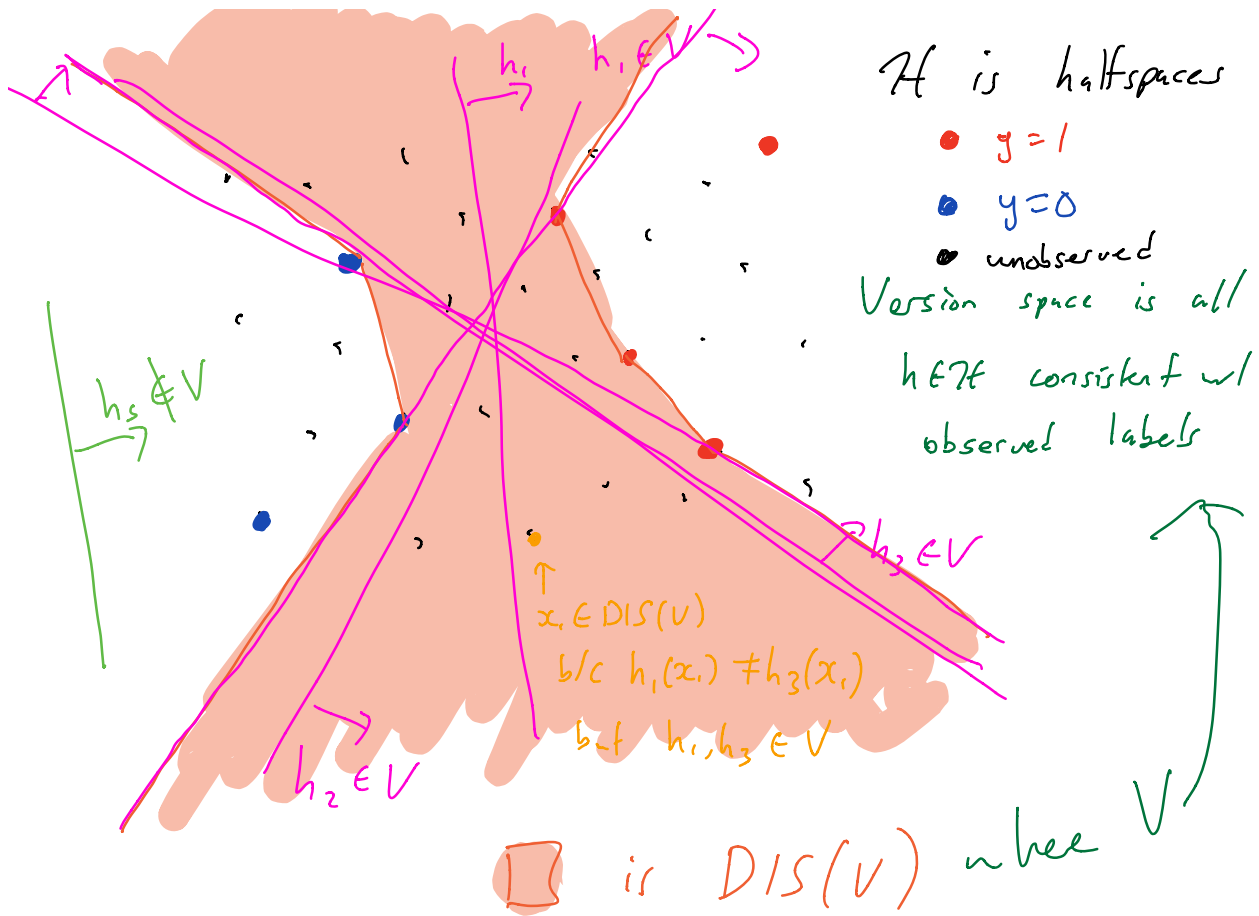 h₁
h₁ ∈ V
H is halfspaces
y = 1
y = 0
unobserved
Version space is all
h ∈ H consistent w/
observed labels
h₅ ∉ V
h₃ ∈ V
x₁ ∈ DIS(V)
b/c h₁(x₁) ≠ h₃(x₁)
but h₁, h₃ ∈ V
h₂ ∈ V
is DIS(V) where V